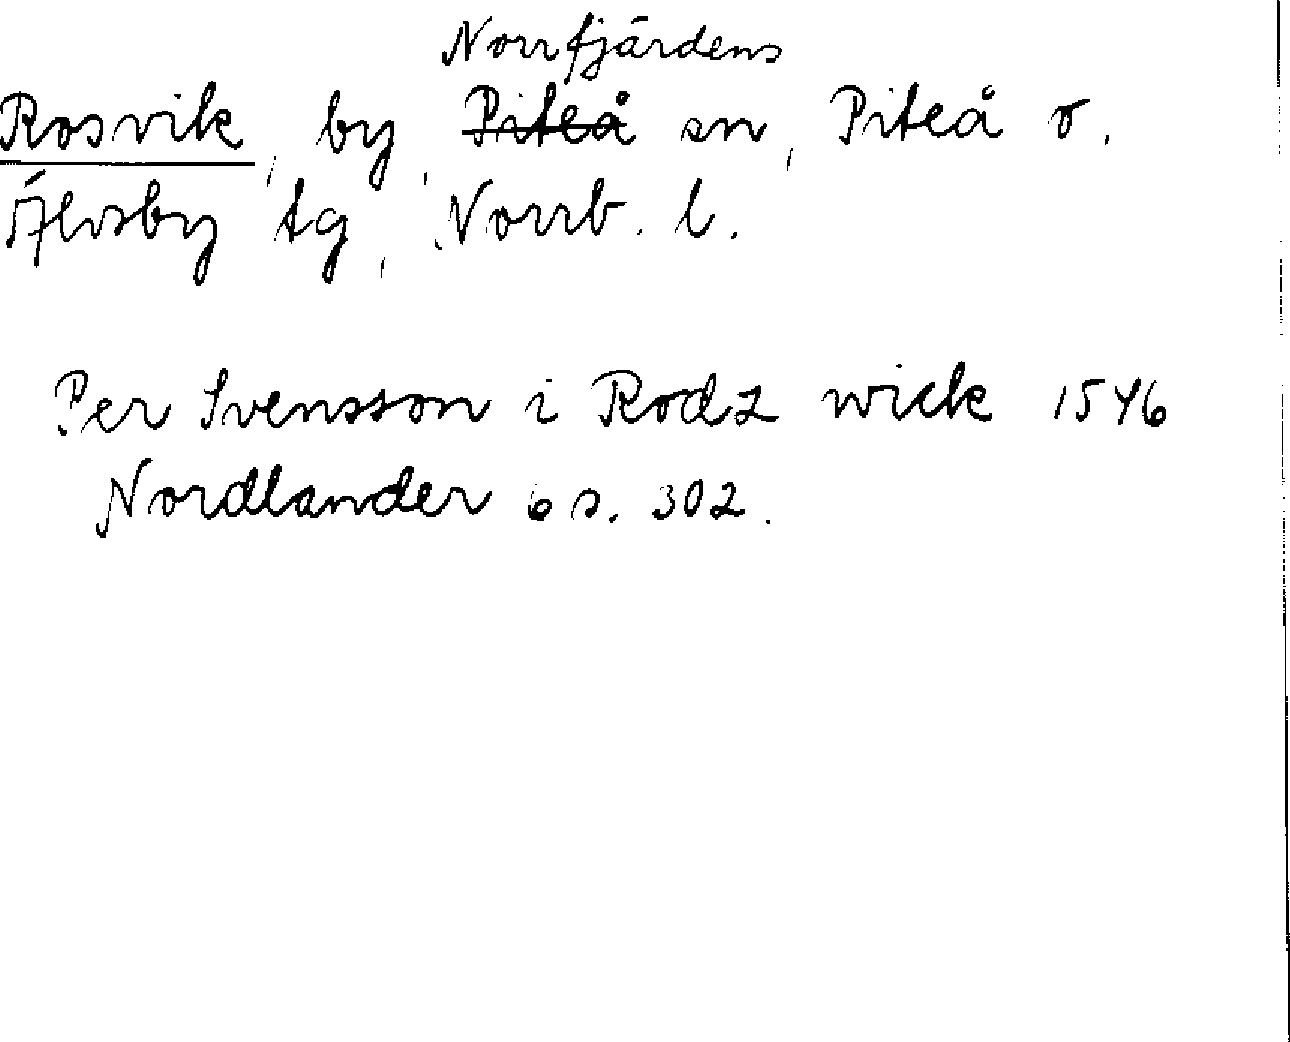 Norrfjärdens
Rosvik, by, Piteå sn, Piteå o.
Älvsby tg, Norrb. l.
Per Svensson i Rodz wick 1546
Nordlander 6 s. 302.